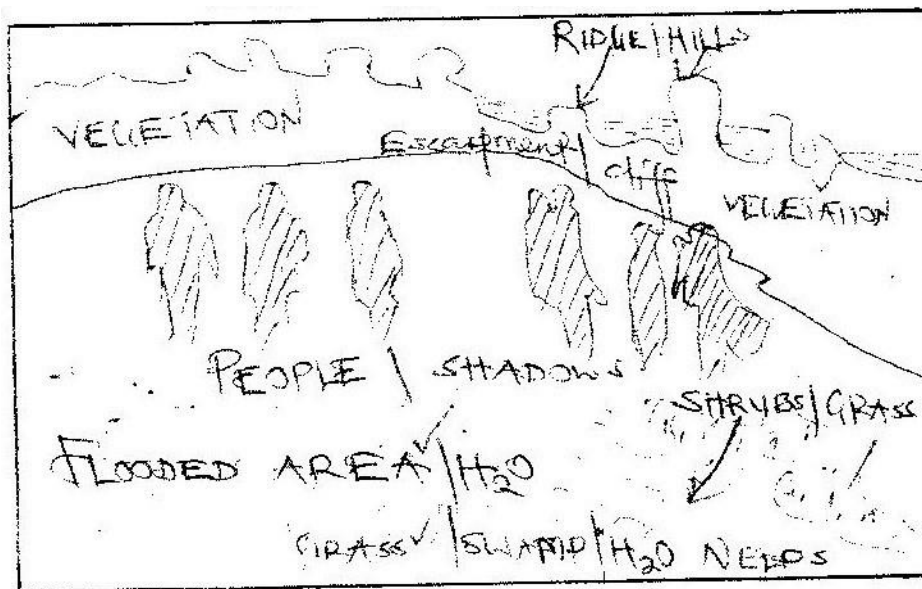 RIDGE/HILLS
VEGETATION
Escarpment/
cliff
VEGETATION
PEOPLE \ SHADOWS
SHRUBS/GRASS
FLOODED AREA/H₂O
GRASS/SWAMP/H₂O